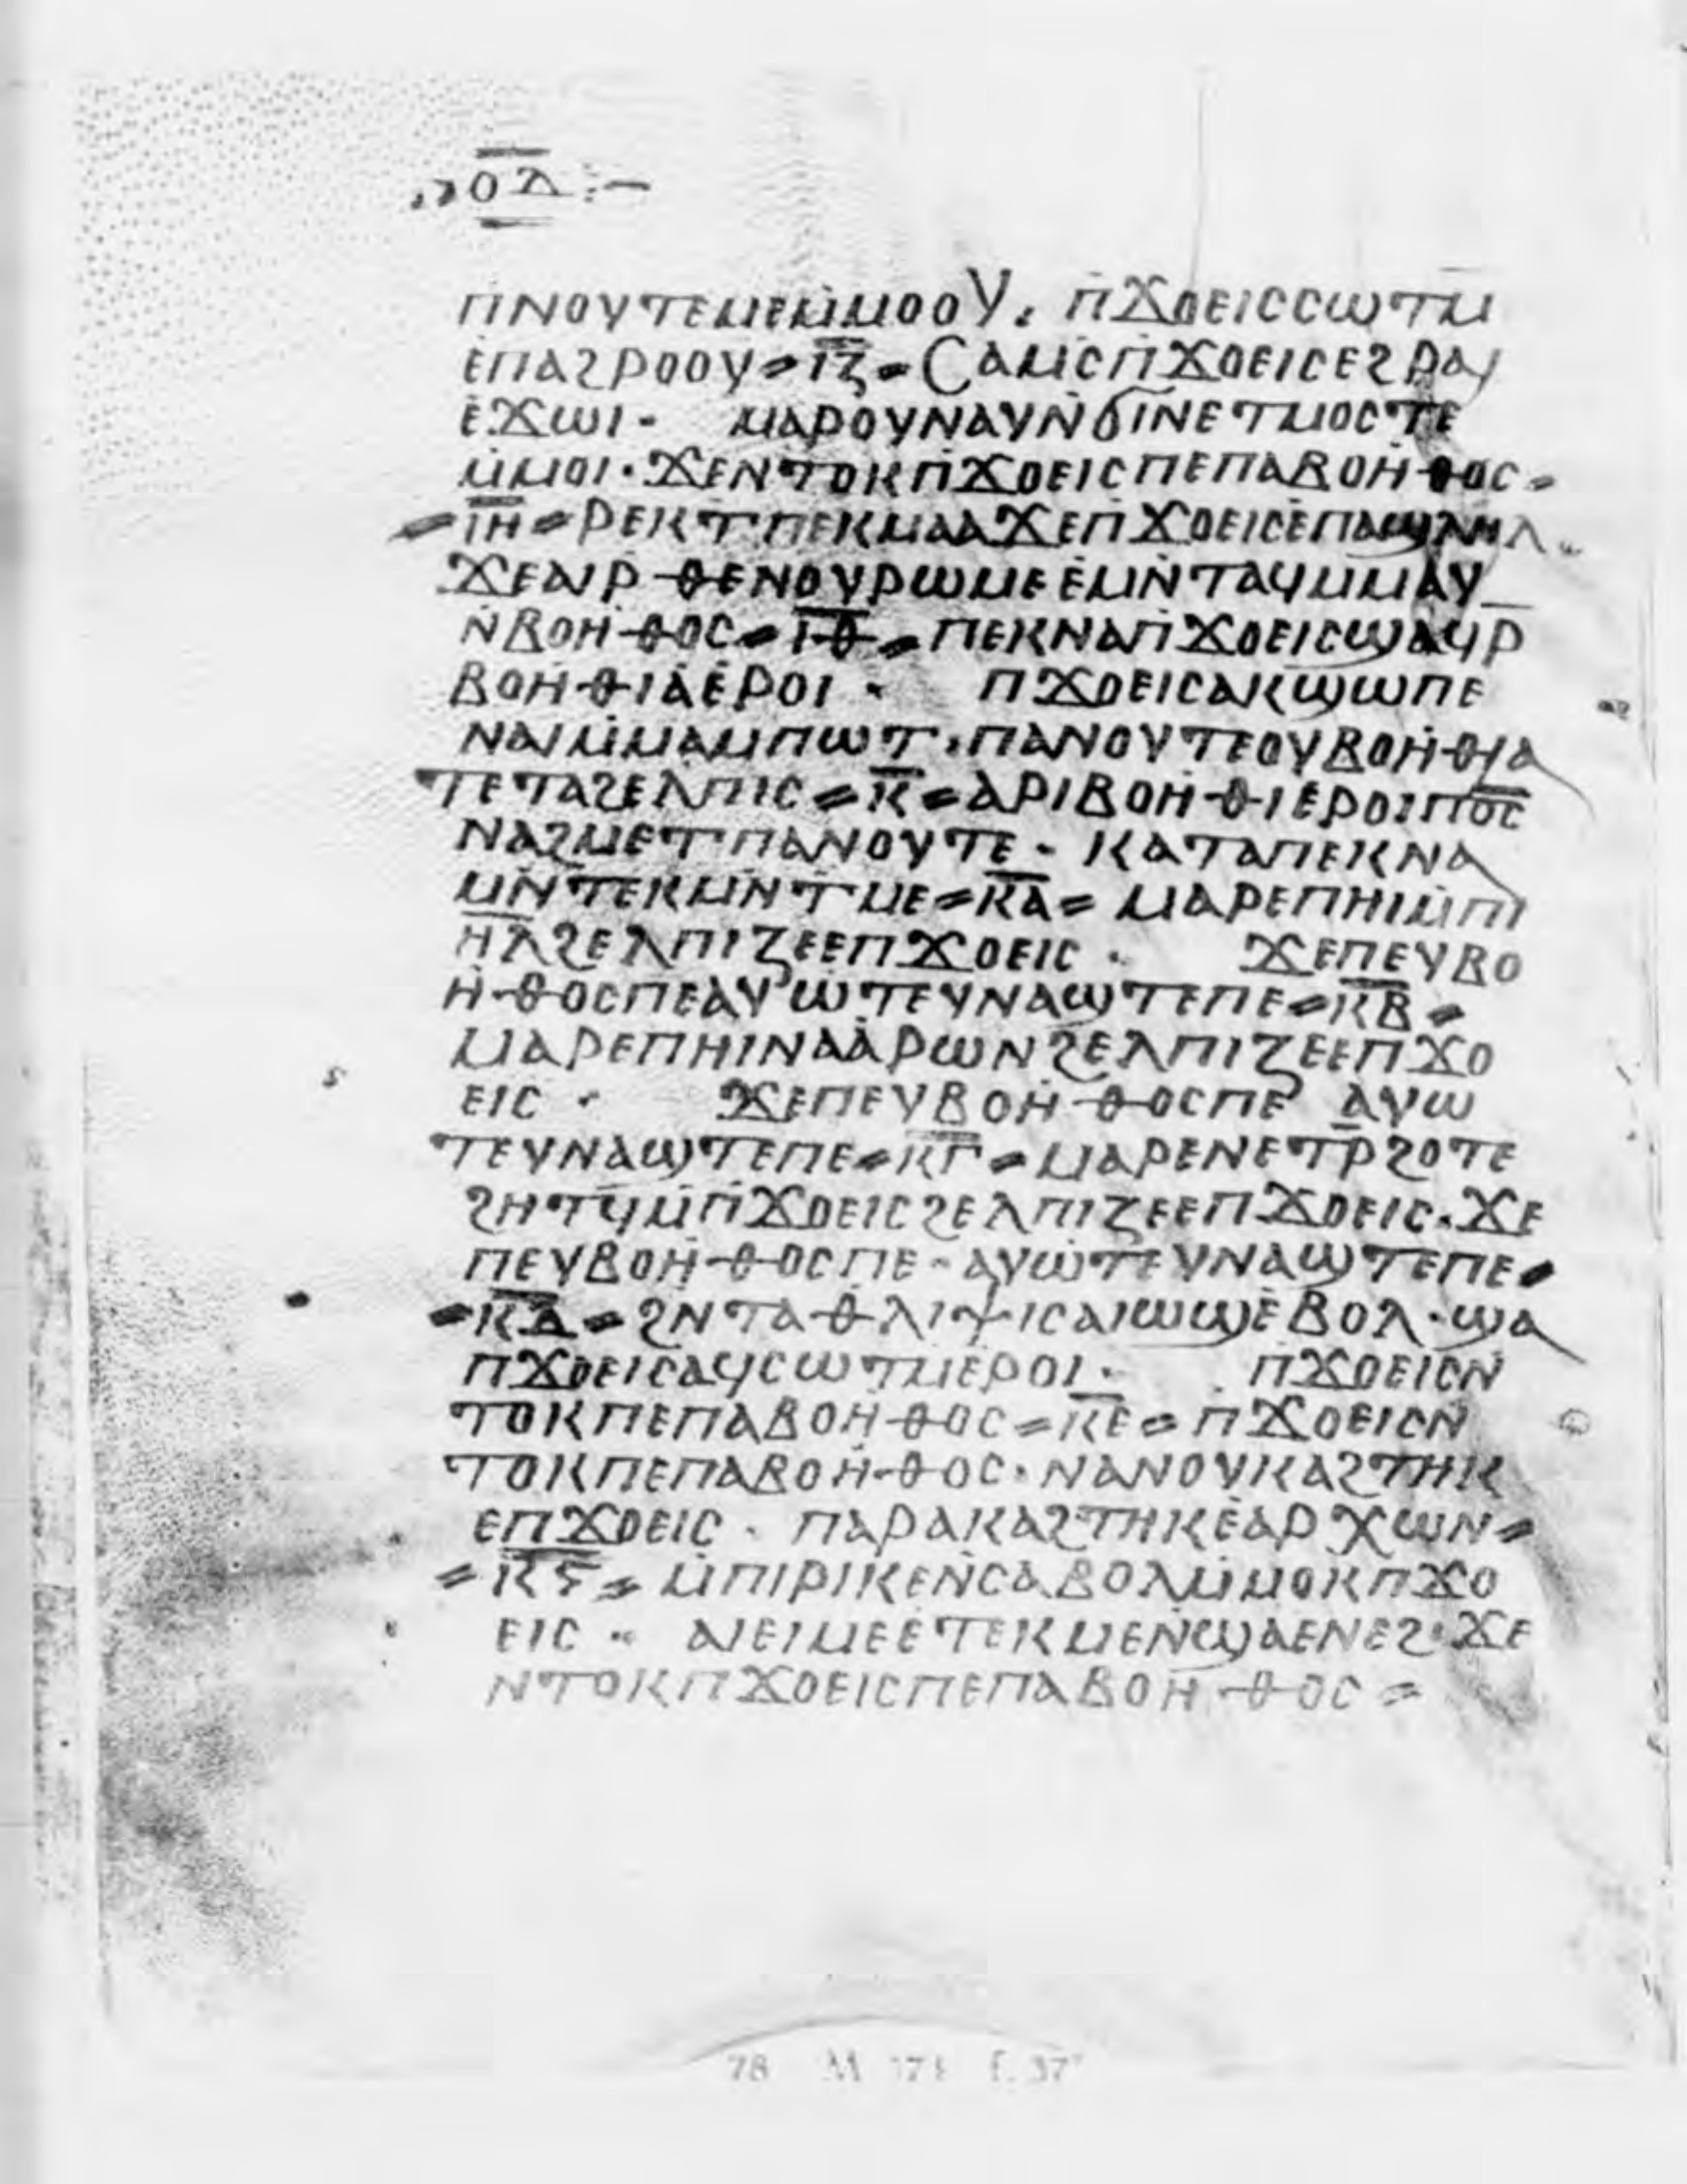 ⲟⲇ :—
ⲡⲛⲟⲩⲧⲉⲙⲉⲙ̇ⲙⲟⲟⲩ. ⲡ̇ϫⲟⲉⲓⲥⲥⲱⲧⲙ
ⲉ̇ⲡⲁϩⲣⲟⲟⲩ = ⲓ̅ⲍ̅ = ⲥⲁⲙⲥⲡ̇ϫⲟⲉⲓⲥⲉϩⲣⲁⲓ
ⲉ̇ϫⲱⲓ · ⲙⲁⲣⲟⲩⲛⲁⲩⲛ̇ϭⲓⲛⲉⲧⲙⲟⲥⲧⲉ
ⲙ̇ⲙⲟⲓ · ϫⲉⲛⲧⲟⲕⲡ̇ϫⲟⲉⲓⲥⲡⲉⲡⲁⲃⲟⲏ̇ⲑⲟⲥ =
= ⲓ̅ⲏ̅ = ⲣⲉⲕⲧⲡⲉⲕⲙⲁⲁϫⲉⲡ̇ϫⲟⲉⲓⲥⲉ̇ⲡⲁϣⲗⲏⲗ
ϫⲉⲁⲓⲣⲑⲉⲛⲟⲩⲣⲱⲙⲉⲉ̇ⲙⲛ̇ⲧⲁϥⲙⲙⲁⲩ
ⲛ̇ⲃⲟⲏ̇ⲑⲟⲥ = ⲓ̅ⲑ̅ = ⲡⲉⲕⲛⲁⲡ̇ϫⲟⲉⲓⲥϣⲁϥⲣ
ⲃⲟⲏ̇ⲑⲓⲁⲉ̇ⲣⲟⲓ · ⲡ̇ϫⲟⲉⲓⲥⲁⲕϣⲱⲡⲉ
ⲛⲁⲓⲙ̇ⲙⲁⲙⲡⲱⲧ · ⲡⲁⲛⲟⲩⲧⲉⲟⲩⲃⲟⲏ̇ⲑⲓⲁ
ⲧⲉⲧⲁϩⲉⲗⲡⲓⲥ = ⲕ̅ = ⲁⲣⲓⲃⲟⲏ̇ⲑⲓⲉ̇ⲣⲟⲓⲡⲟ̅ⲥ̅
ⲛⲁϩⲙⲉⲧⲡⲁⲛⲟⲩⲧⲉ · ⲕⲁⲧⲁⲡⲉⲕⲛⲁ
ⲙⲛ̇ⲧⲉⲕⲙⲛⲧⲙⲉ = ⲕ̅ⲁ̅ = ⲙⲁⲣⲉⲡⲏⲓⲙ̇ⲡⲓ
ⲏ̅ⲗ̅ϩⲉⲗⲡⲓⲍⲉⲉⲡϫⲟⲉⲓⲥ · ϫⲉⲡⲉⲩⲃⲟ
ⲏ̇ⲑⲟⲥⲡⲉⲁⲩⲱⲧⲉⲩⲛⲁϣⲧⲉⲡⲉ = ⲕ̅ⲃ̅ =
ⲙⲁⲣⲉⲡⲏⲓⲛⲁⲁ̇ⲣⲱⲛϩⲉⲗⲡⲓⲍⲉⲉⲡϫⲟ
ⲉⲓⲥ · ϫⲉⲡⲉⲩⲃⲟⲏ̇ⲑⲟⲥⲡⲉ ⲁⲩⲱ
ⲧⲉⲩⲛⲁϣⲧⲉⲡⲉ = ⲕ̅ⲅ̅ = ⲙⲁⲣⲉⲛⲉⲧⲣ̅ϩⲟⲧⲉ
ϩⲏⲧϥⲙ̇ⲡ̇ϫⲟⲉⲓⲥϩⲉⲗⲡⲓⲍⲉⲉⲡϫⲟⲉⲓⲥ · ϫⲉ
ⲡⲉⲩⲃⲟⲏ̇ⲑⲟⲥⲡⲉ · ⲁⲩⲱⲧⲉⲩⲛⲁϣⲧⲉⲡⲉ =
= ⲕ̅ⲇ̅ = ϩⲛⲧⲁⲑⲗⲓⲯⲓⲥⲁⲓⲱϣⲉ̇ⲃⲟⲗ · ϣⲁ
ⲡϫⲟⲉⲓⲥⲁϥⲥⲱⲧⲙⲉ̇ⲣⲟⲓ · ⲡϫⲟⲉⲓⲥⲛ̇
ⲧⲟⲕⲡⲉⲡⲁⲃⲟⲏ̇ⲑⲟⲥ = ⲕ̅ⲉ̅ = ⲡ̇ϫⲟⲉⲓⲥⲛ̇
ⲧⲟⲕⲡⲉⲡⲁⲃⲟⲏ̇ⲑⲟⲥ · ⲛⲁⲛⲟⲩⲕⲁϩⲧⲏⲕ
ⲉⲡϫⲟⲉⲓⲥ · ⲡⲁⲣⲁⲕⲁϩⲧⲏⲕⲉ̇ⲁⲣⲭⲱⲛ =
= ⲕ̅ⲋ̅ = ⲙ̇ⲡⲓⲣⲓⲕⲉⲛ̇ⲥⲁⲃⲟⲗⲙ̇ⲙⲟⲕⲡϫⲟ
ⲉⲓⲥ · ⲁⲓⲉⲓⲙⲉⲉ̇ⲧⲉⲕⲙⲉⲛ̇ϣⲁⲉⲛⲉϩ · ϫⲉ
ⲛⲧⲟⲕⲡϫⲟⲉⲓⲥⲡⲉⲡⲁⲃⲟⲏ̇ⲑⲟⲥ =
78 M 574 f. 37ᵛ